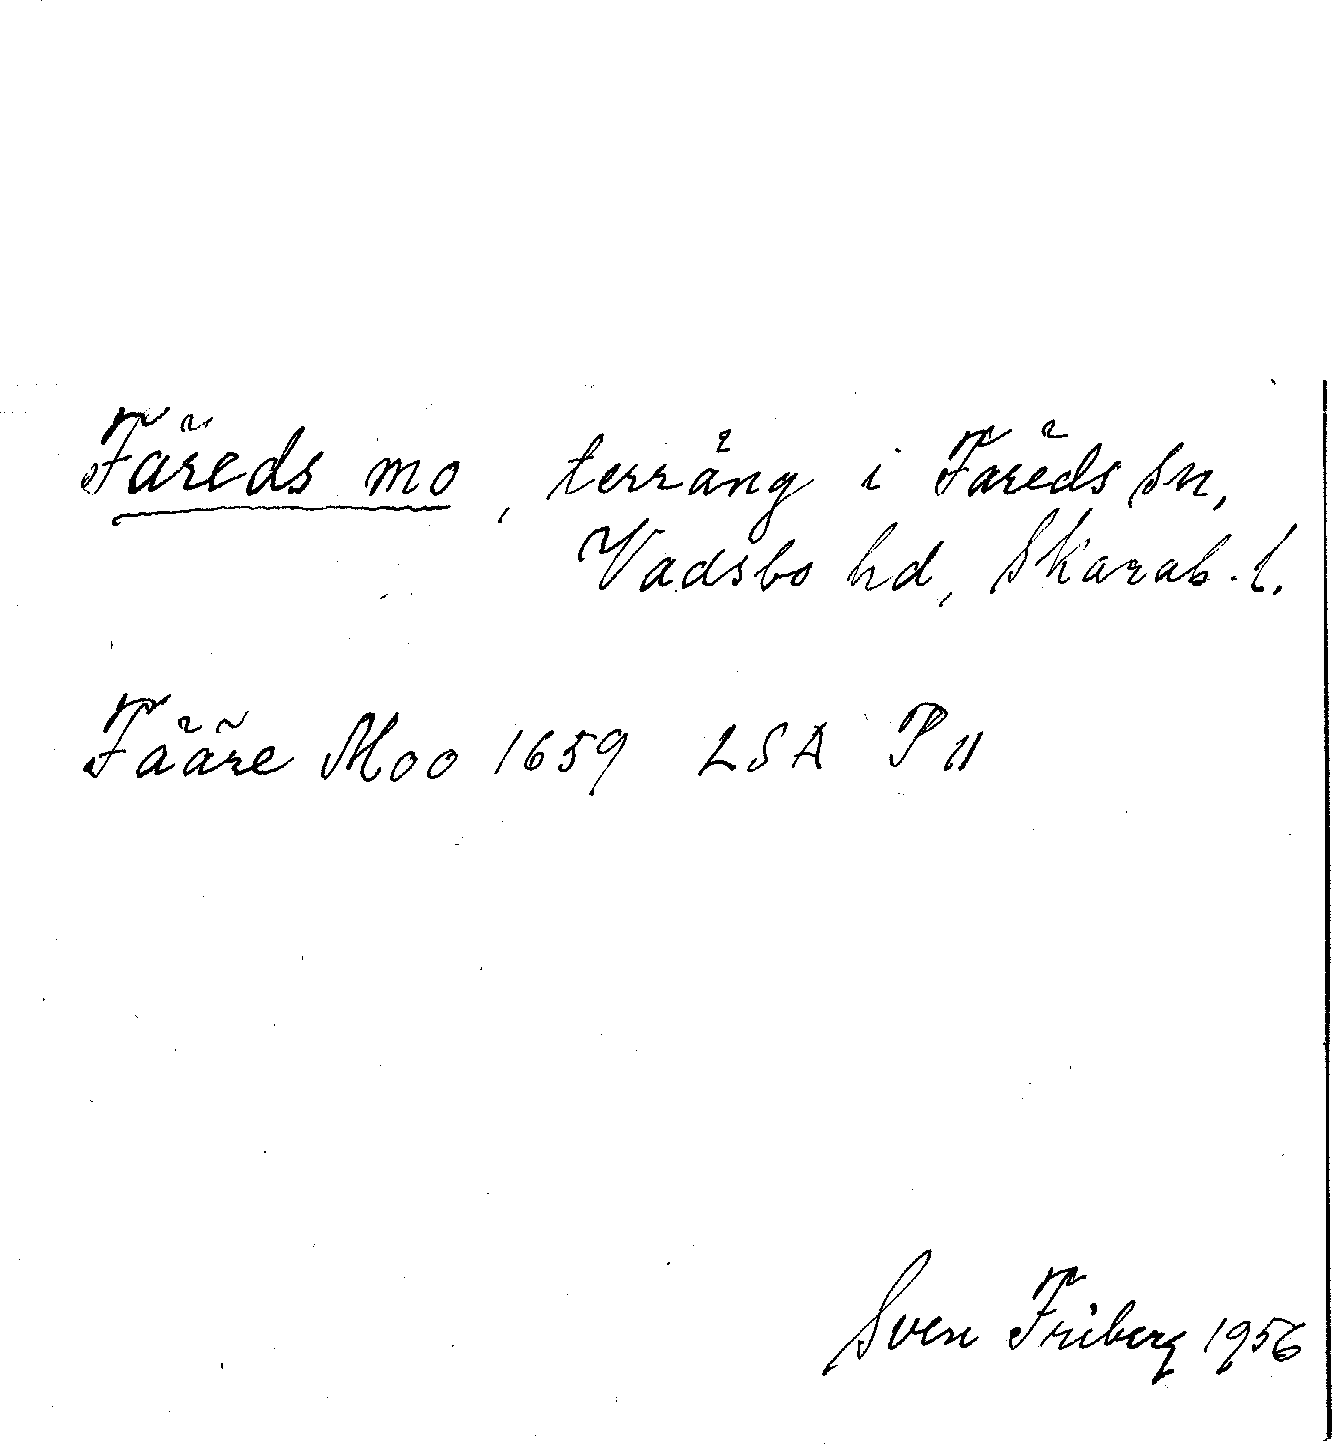 Färeds mo, terräng i Färeds sn,
Vadsbo hd, Skarab. l.
Fääre Moo 1659 LSA P 11
Sven Friberg 1956